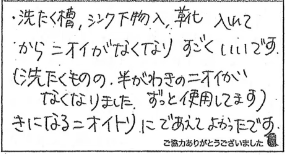 ・洗たく槽,シンク下物入,靴に入れて
からニオイがなくなり すごくいいです.
(洗たくものの,半がわきのニオイがなくなりました. ずっと使用してます)
きになるニオイトリにであえてよかったです.
ご協力ありがとうございました